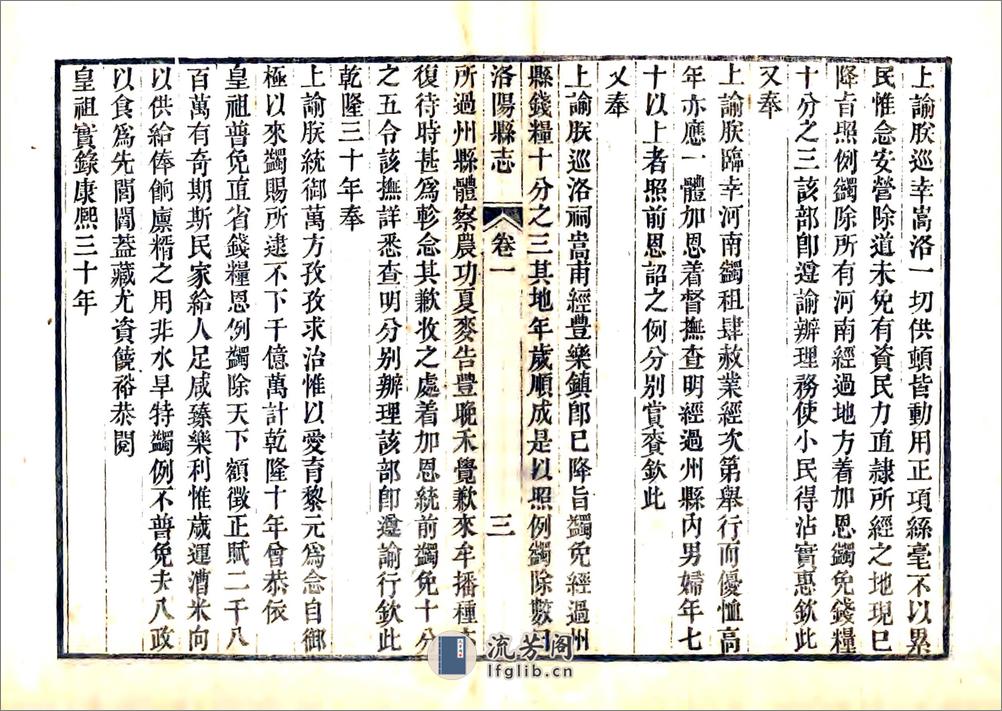 上諭朕巡幸嵩洛一切供頓皆動用正項絲毫不以累
民惟念安營除道未免有資民力直隸所經之地現已
降旨照例蠲除所有河南經過地方着加恩蠲免錢糧
十分之三該部卽遵諭辦理務使小民得沾實惠欽此
又奉
上諭朕臨幸河南蠲租肆赦業經次第舉行而優恤高
年亦應一體加恩着督撫查明經過州縣內男婦年七
十以上者照前恩詔之例分别賞賚欽此
又奉
上諭朕巡洛祠嵩甫經豐樂鎮卽已降旨蠲免經過州
縣錢糧十分之三其地年歲順成是以照例蠲除數日
洛陽縣志 卷一 三
所過州縣體察農功夏麥告豐晚禾覺歉來牟播種
復待時甚爲軫念其歉收之處着加恩統前蠲免十分
之五令該撫詳悉查明分别辦理該部卽遵諭行欽此
乾隆三十年奉
上諭朕統御萬方孜孜求治惟以愛育黎元爲念自御
極以來蠲賜所逮不下千億萬計乾隆十年曾恭依
皇祖普免直省錢糧恩例蠲除天下額徵正賦二千八
百萬有奇期斯民家給人足咸臻樂利惟歲運漕米向
以供給俸餉廪糈之用非水旱特蠲例不普免夫八政
以食爲先閭閻葢藏尤資饒裕恭閱
皇祖實錄康熙三十年
流芳阁
lfglib.com